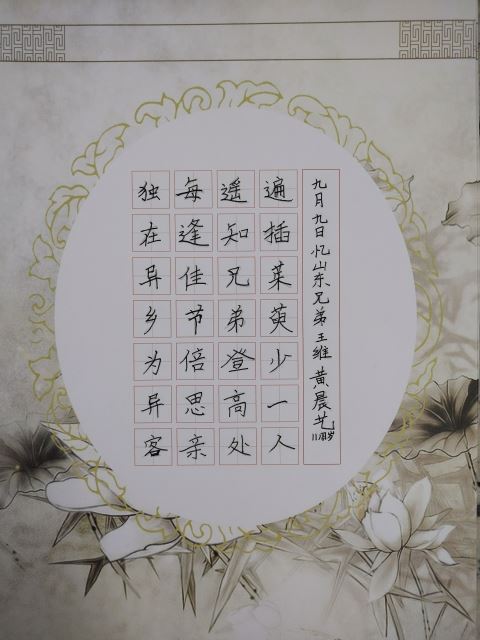 独在异乡为异客
每逢佳节倍思亲
遥知兄弟登高处
遍插茱萸少一人
九月九日忆山东兄弟 王维 黄晨艺
11周岁